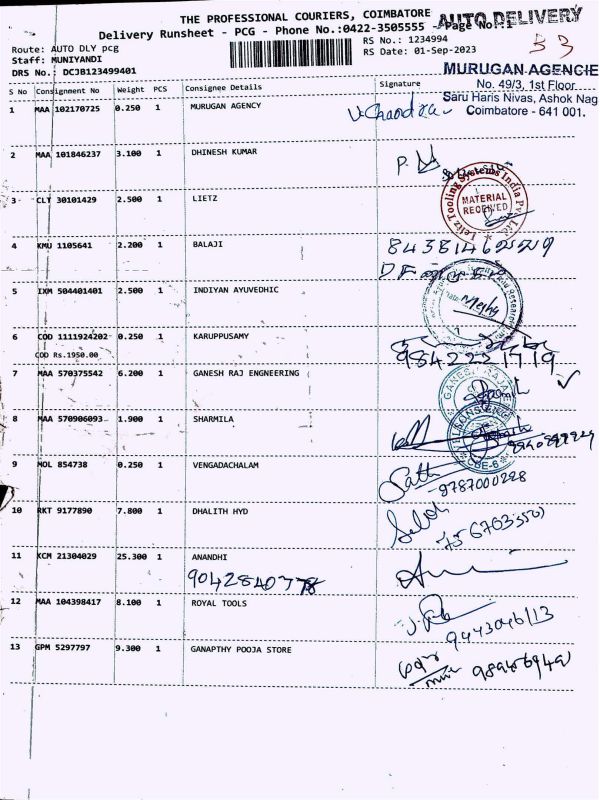 THE PROFESSIONAL COURIERS, COIMBATORE
AUTO DELIVERY
Delivery Runsheet - PCG - Phone No.:0422-3505555 - Page No.:1
Route: AUTO DLY pcg
RS No.: 1234994
Staff: MUNIYANDI
RS Date: 01-Sep-2023
DRS No.: DCJB123499401
MURUGAN AGENCIE
No. 49/3, 1st Floor
Saru Haris Nivas, Ashok Nag
Coimbatore - 641 001.
S No Consignment No Weight PCS Consignee Details Signature
1 MAA 102170725 0.250 1 MURUGAN AGENCY
V.Chandra
2 MAA 101846237 3.100 1 DHINESH KUMAR
3 CLT 30101429 2.500 1 LIETZ
Tooling Systems India Pvt. Ltd.
MATERIAL RECEIVED
4 KMU 1105641 2.200 1 BALAJI
5 IXM 504401401 2.500 1 INDIYAN AYUVEDHIC
6 COD 1111924202 0.250 1 KARUPPUSAMY
COD Rs.1950.00
9842221719
7 MAA 570375542 6.200 1 GANESH RAJ ENGNEERING
8 MAA 570906093 1.900 1 SHARMILA
CBE-6
9 MOL 854738 0.250 1 VENGADACHALAM
9787000228
10 RKT 9177890 7.800 1 DHALITH HYD
11 KCM 21304029 25.300 1 ANANDHI
9042840778
12 MAA 104398417 8.100 1 ROYAL TOOLS
13 GPM 5297797 9.300 1 GANAPTHY POOJA STORE